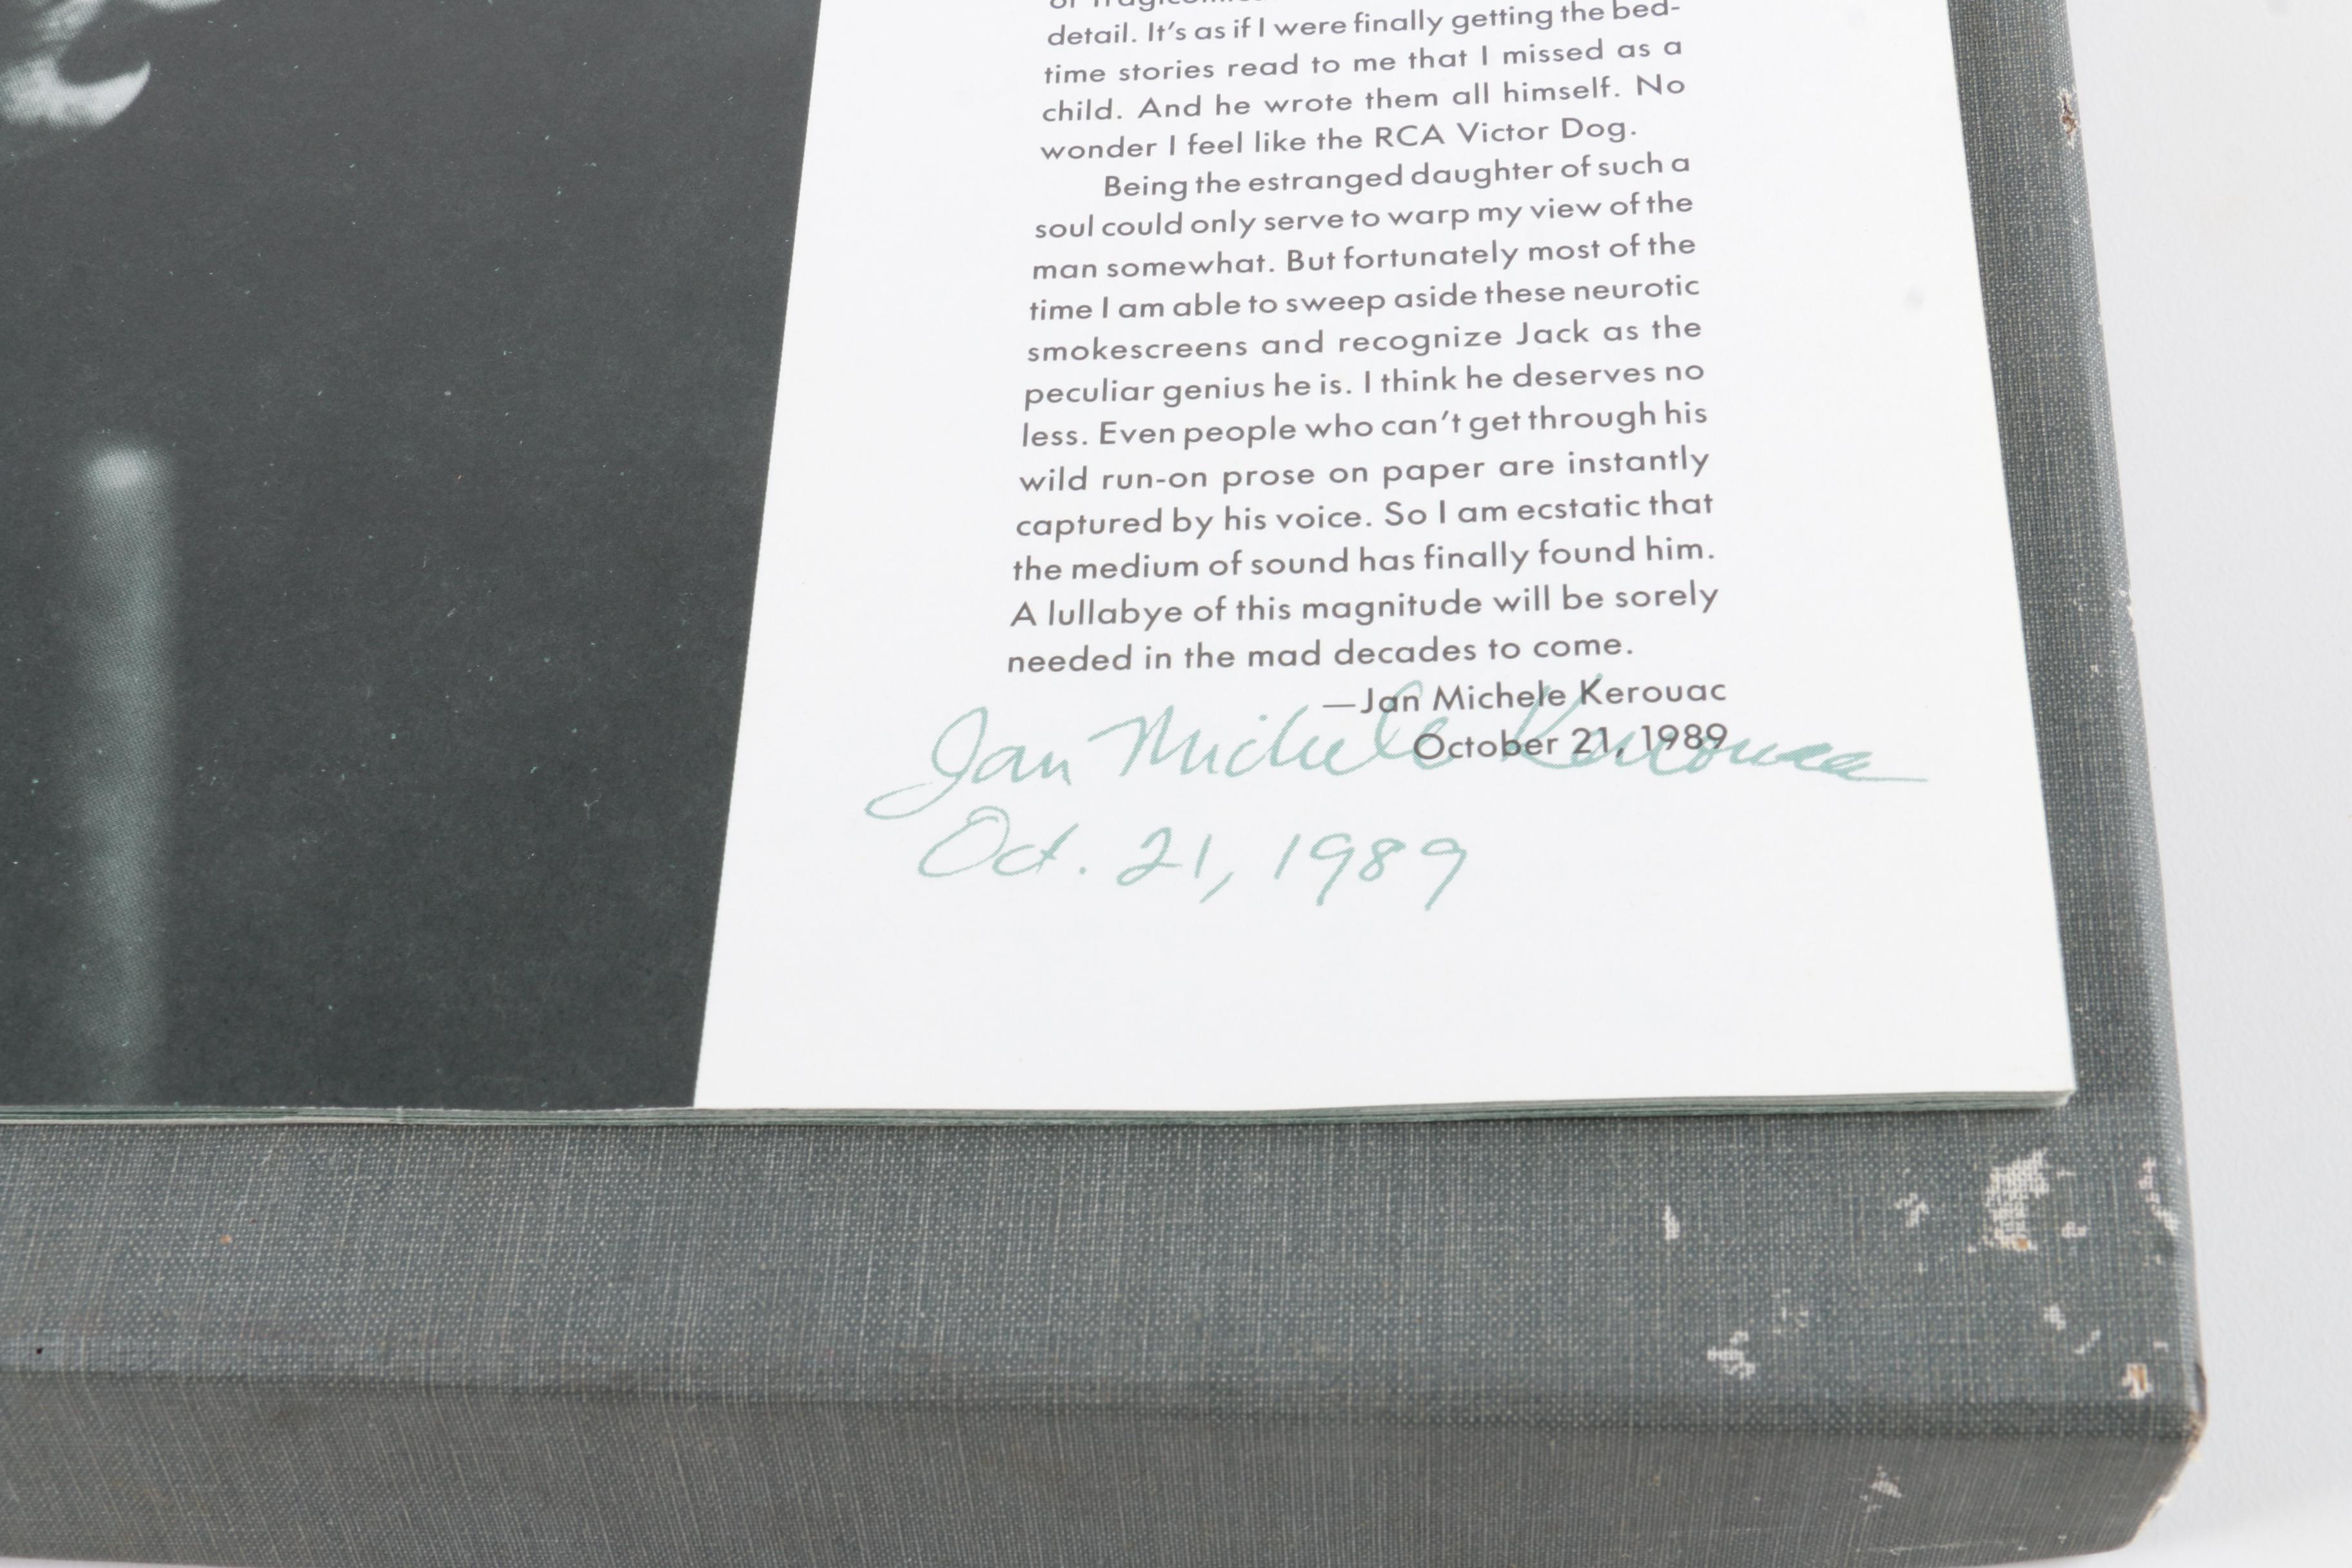 detail. It's as if I were finally getting the bed-
time stories read to me that I missed as a
child. And he wrote them all himself. No
wonder I feel like the RCA Victor Dog.
Being the estranged daughter of such a
soul could only serve to warp my view of the
man somewhat. But fortunately most of the
time I am able to sweep aside these neurotic
smokescreens and recognize Jack as the
peculiar genius he is. I think he deserves no
less. Even people who can't get through his
wild run-on prose on paper are instantly
captured by his voice. So I am ecstatic that
the medium of sound has finally found him.
A lullabye of this magnitude will be sorely
needed in the mad decades to come.
—Jan Michele Kerouac
October 21, 1989
Jan Michele Kerouac
Oct. 21, 1989